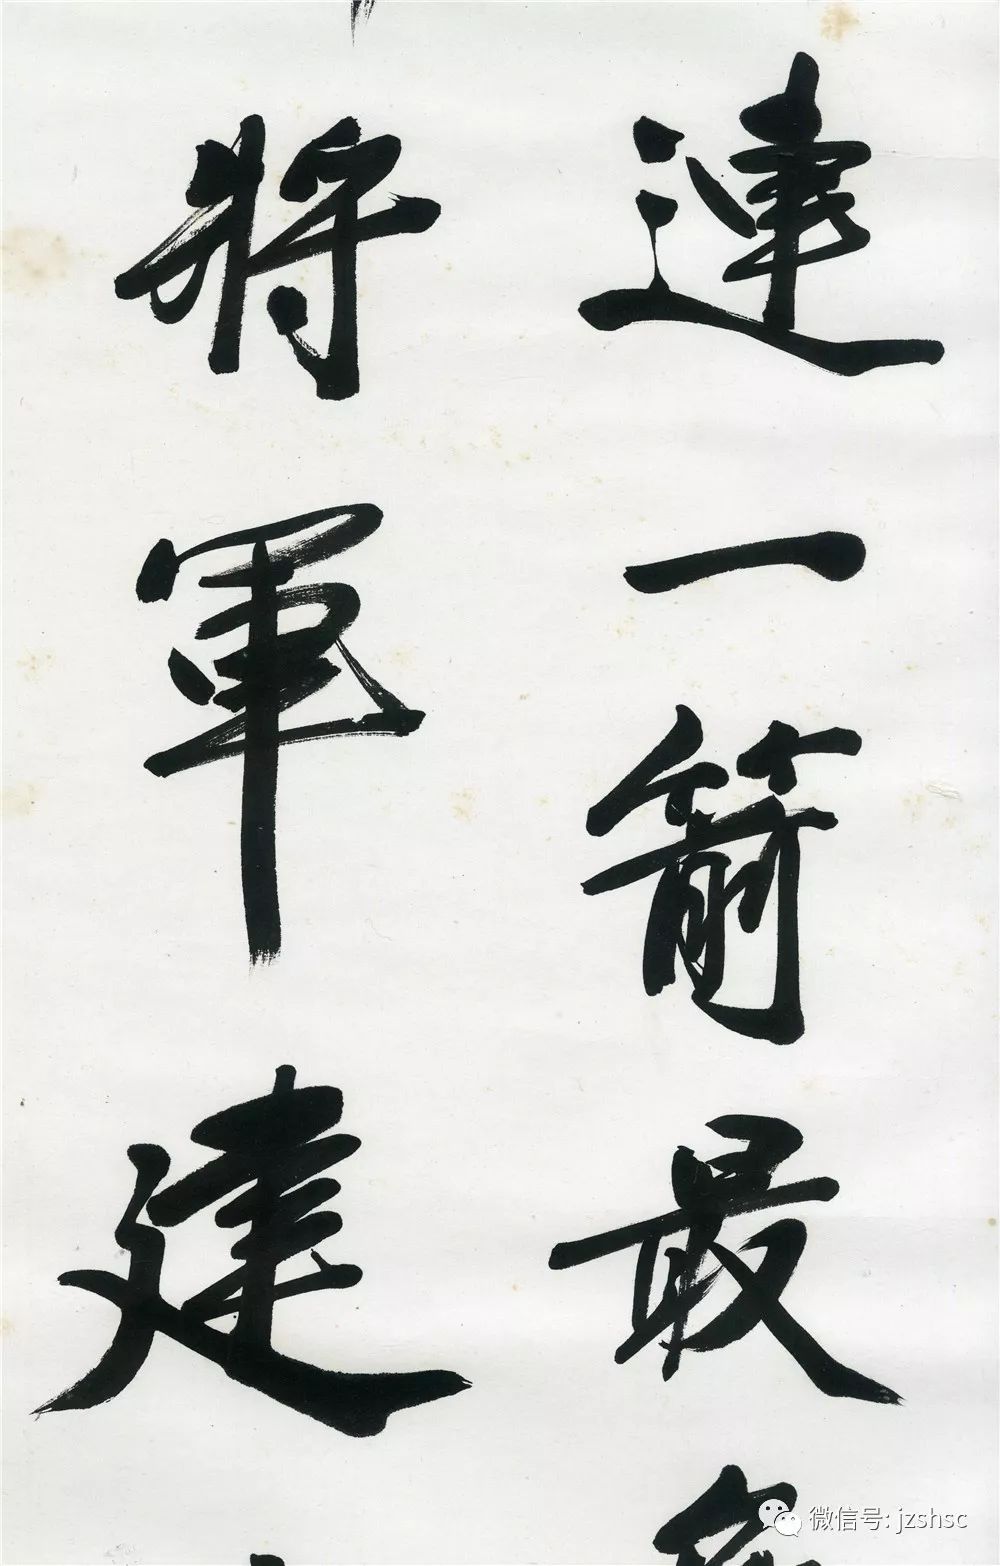 連一箭最
將軍建
微信号: jzshsc